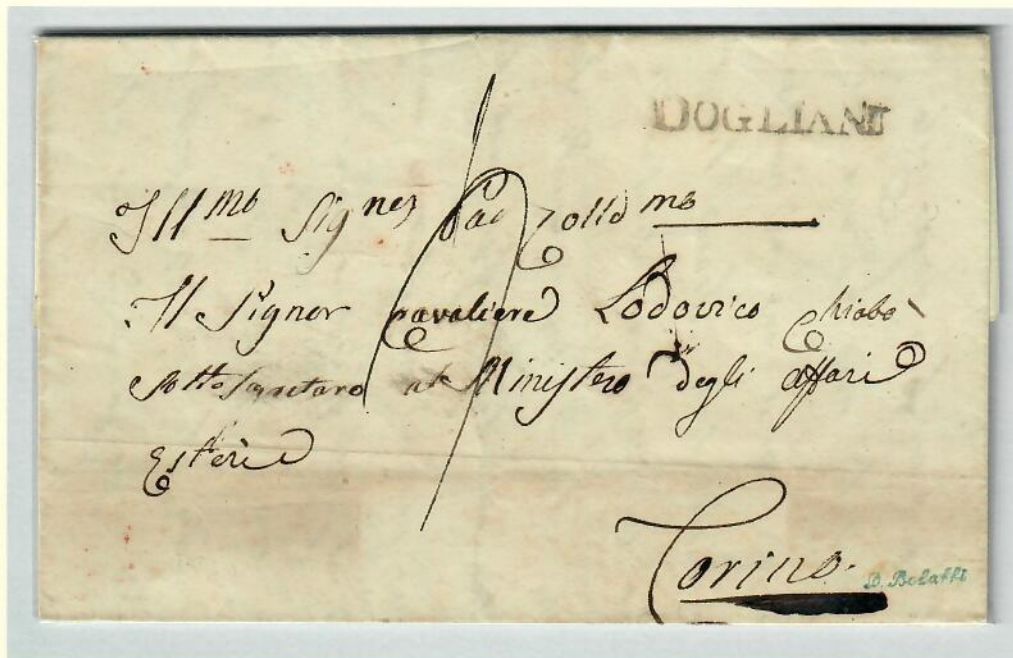 DOGLIANI
Ill.mo Sig.nor Pad
Il Signor Cavaliere Lodovico Chiabò
Sotto Segretaro al Ministero degli affari
Esteri
Torino.
D. Bolaffi